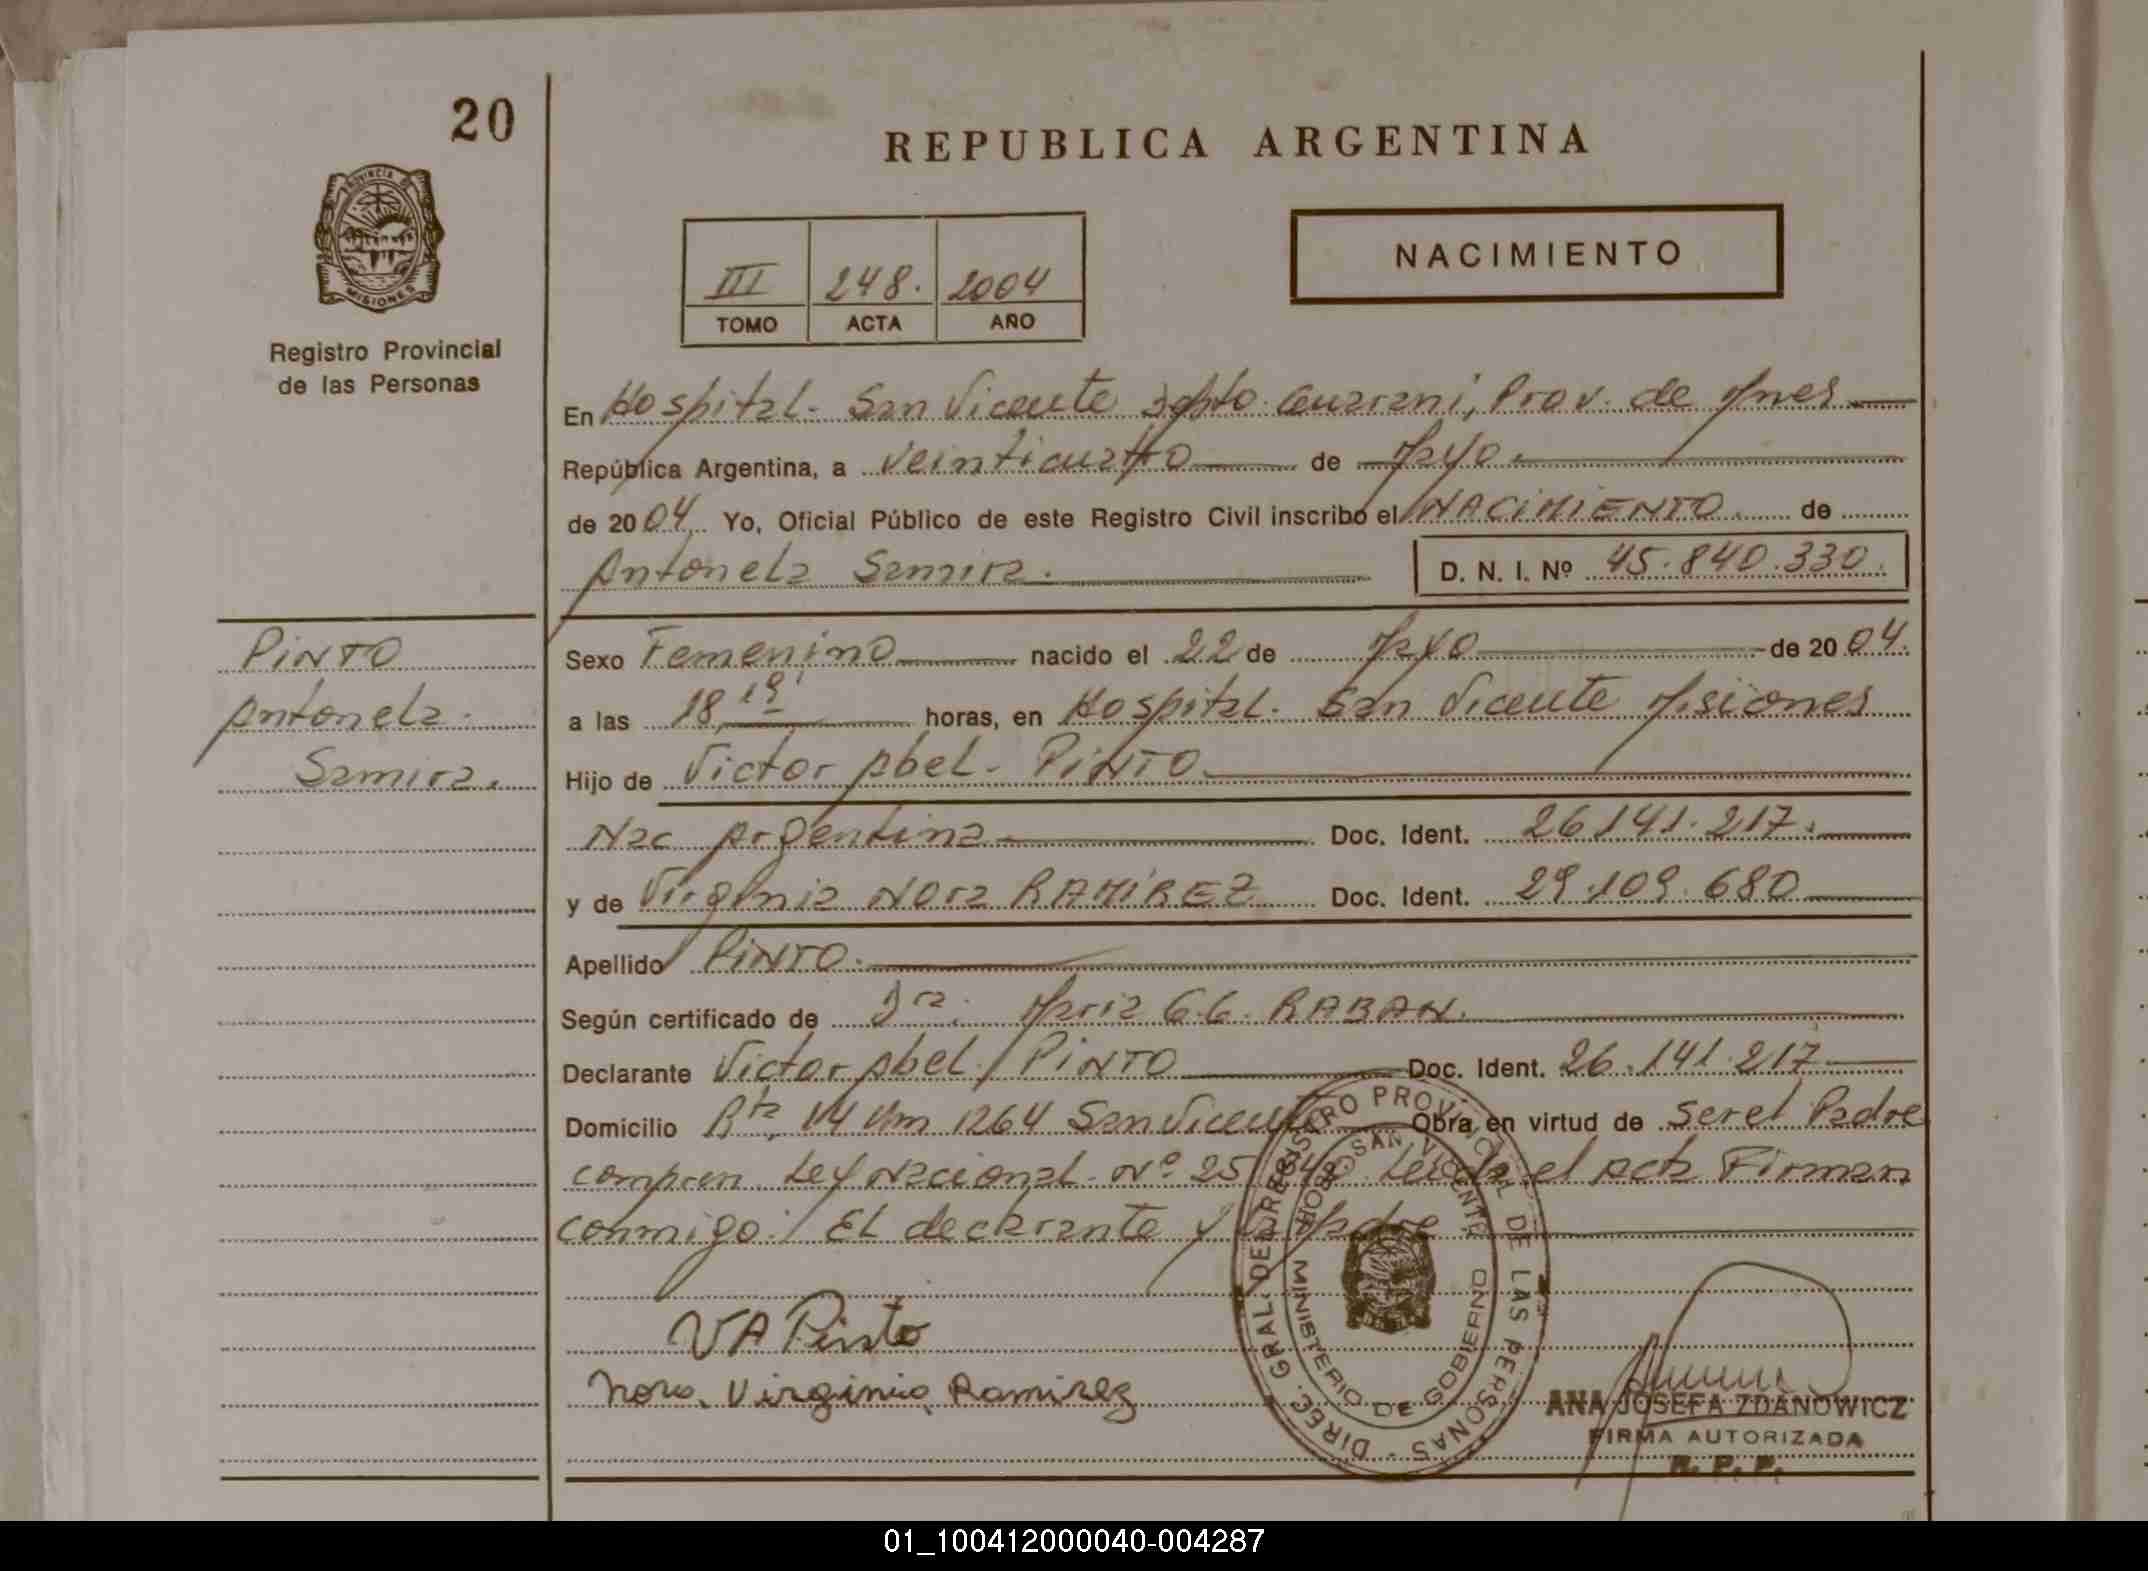 20
REPUBLICA ARGENTINA
PROVINCIA DE
MISIONES
Registro Provincial
de las Personas
NACIMIENTO
III 248. 2004
TOMO ACTA AÑO
En Hospital. San Vicente Dpto. Guarani, Prov. de Mnes
República Argentina, a Veinticuatro de Mayo.
de 2004. Yo, Oficial Público de este Registro Civil inscribo el NACIMIENTO de
Antonela Samira. D. N. I. Nº 45.840.330.
PINTO
Antonela.
Samira.
Sexo Femenino nacido el 22 de Mayo de 2004.
a las 18,19' horas, en Hospital. San Vicente Misiones
Hijo de Victor Abel. PINTO
Nac Argentina Doc. Ident. 26.141.217.
y de Virginia Nora RAMIREZ Doc. Ident. 29.109.680
Apellido PINTO.
Según certificado de Dra. Maria G.G. RABAN.
Declarante Victor Abel. PINTO Doc. Ident. 26.141.217
Domicilio Rta. 14 Km 1264 San Vicente Obra en virtud de Ser el Padre
Ley Nacional. Nº 25 Leida el Acta Firman
conmigo: El declarante y la Madre
VA Pinto
Nora Virginia Ramirez
DIREC. GRAL. DE REGISTRO PROVINCIAL DE LAS PERSONAS
SAN VICENTE
MINISTERIO DE GOBIERNO
ANA JOSEFA ZDANOWICZ
FIRMA AUTORIZADA
R. P. P.
01_100412000040-004287